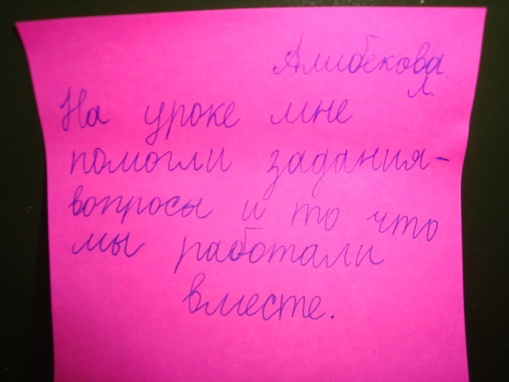 Алибекова
Л.
На уроке мне
помогли задания-
вопросы и то что
мы работали
вместе.